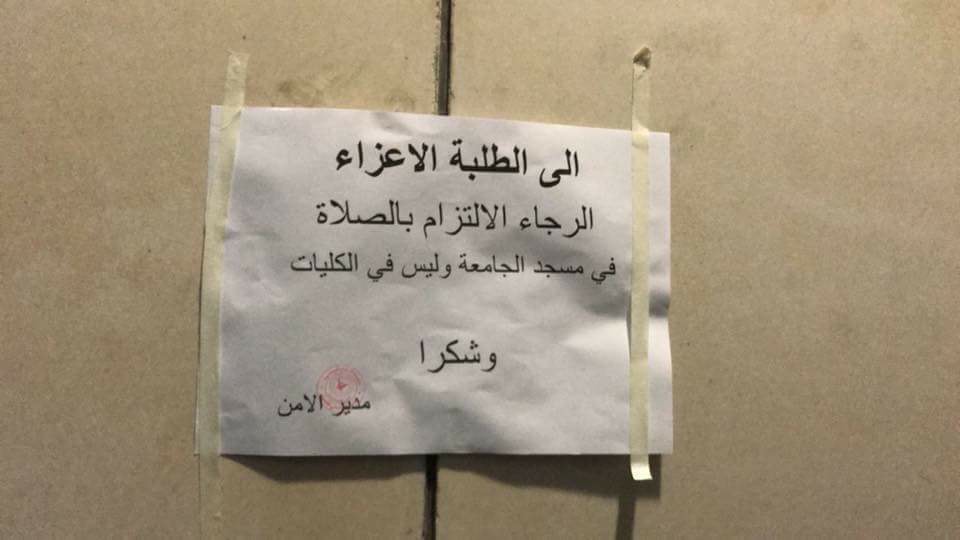 الى الطلبة الاعزاء
الرجاء الالتزام بالصلاة
في مسجد الجامعة وليس في الكليات
وشكرا
مدير الامن